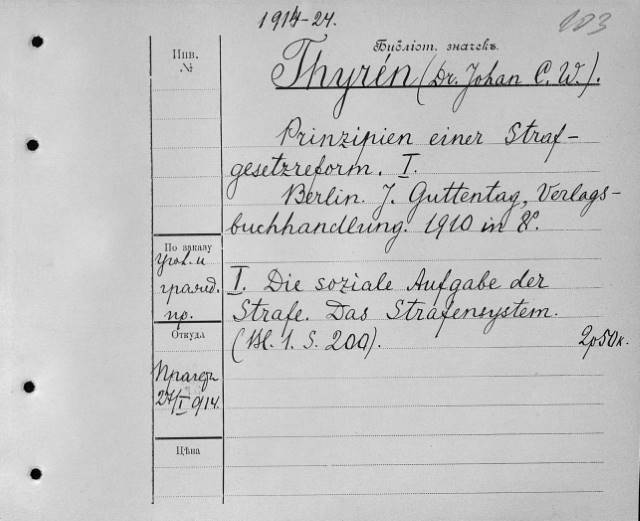 1914-24.
183
Библіот. значекъ.
Инв.
№
Thyrén (Dr. Johan C. W.).
Prinzipien einer Straf-
gesetzreform. I.
Berlin. J. Guttentag, Verlags-
buchhandlung. 1910 in 8°.
По заказу
Угол. и
гражд.
пр.
I. Die soziale Aufgabe der
Strafe. Das Strafensystem.
(Bl. 1. S. 200).
2р50к.
Откуда
27/I 914.
Цѣна